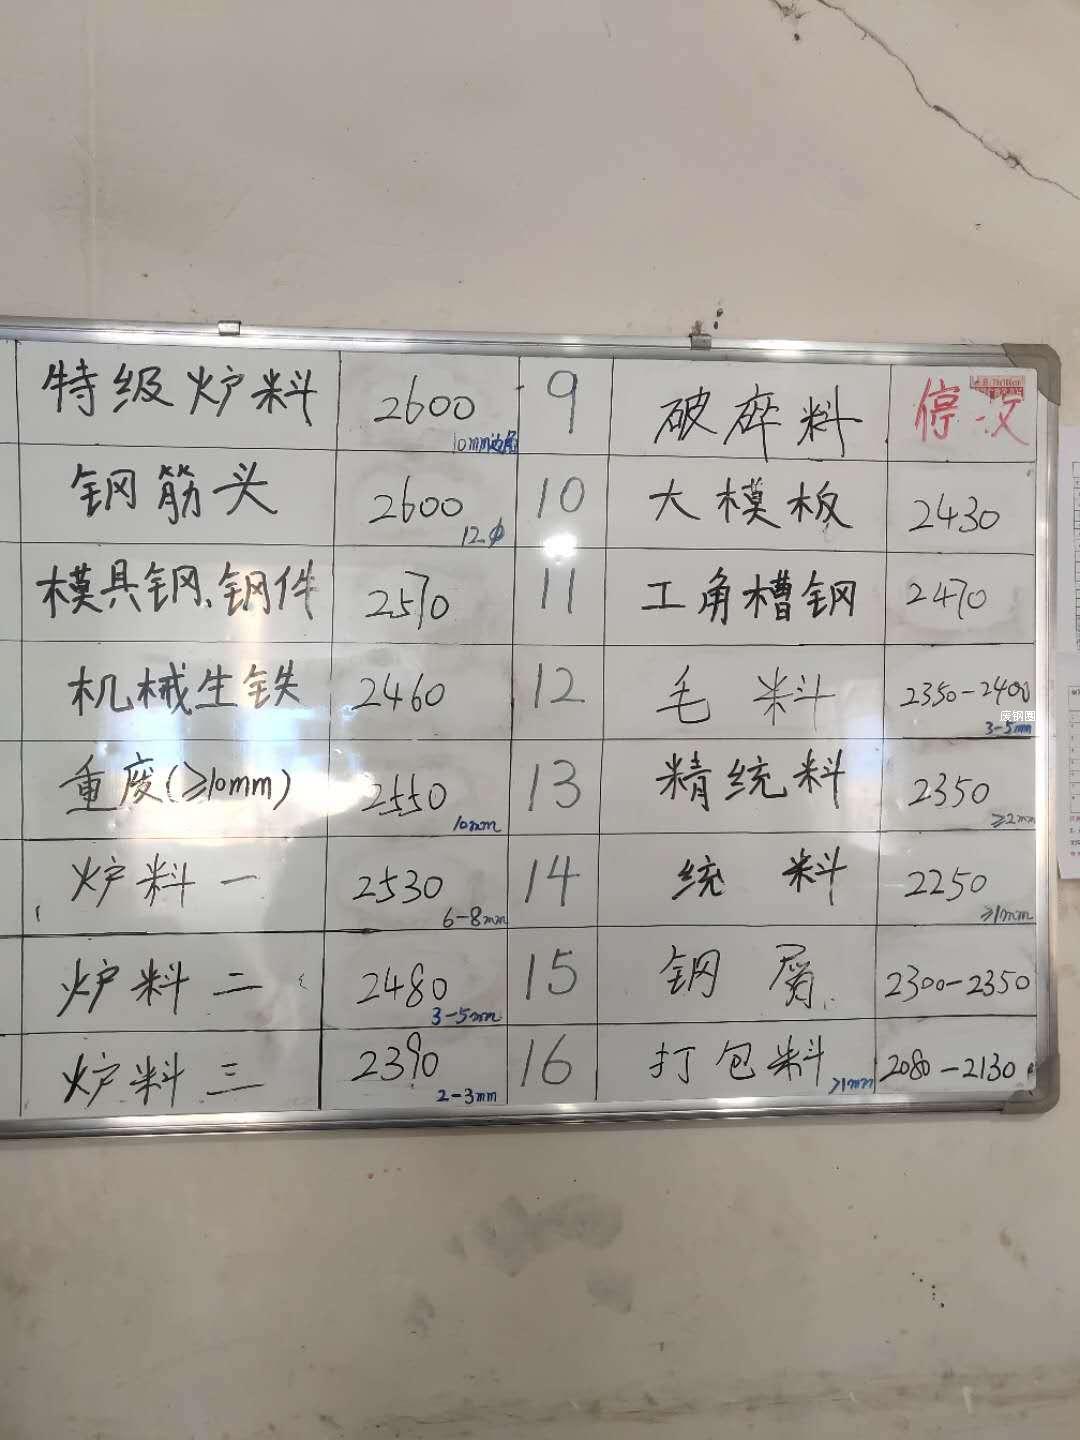 特级炉料 2600 10mm边角 9 破碎料 停收
钢筋头 2600 12φ 10 大模板 2430
模具钢、钢件 2570 11 工角槽钢 2470
机械生铁 2460 12 毛料 2350-2400 3-5mm
废钢圈
重废(≥10mm) 2550 10mm 13 精统料 2350 ≥2mm
炉料一 2530 6-8mm 14 统料 2250 ≥1mm
炉料二 2480 3-5mm 15 钢屑 2300-2350
炉料三 2390 2-3mm 16 打包料 >1mm 2080-2130